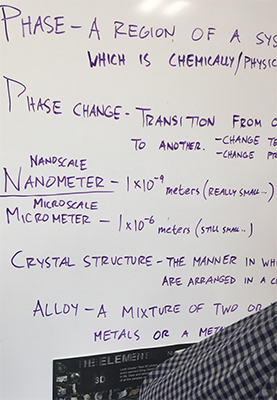 PHASE - A REGION OF A SYS
WHICH IS CHEMICALLY/PHYSIC
PHASE CHANGE - TRANSITION FROM O
TO ANOTHER. - CHANGE TE
- CHANGE PR
NANOSCALE
NANOMETER - 1x10⁻⁹ meters (REALLY SMALL..)
MICROSCALE
MICROMETER - 1x10⁻⁶ meters (STILL SMALL..)
CRYSTAL STRUCTURE - THE MANNER IN WH
ARE ARRANGED IN A C
ALLOY - A MIXTURE OF TWO OR
METALS OR A META
THE ELEMEN
3D